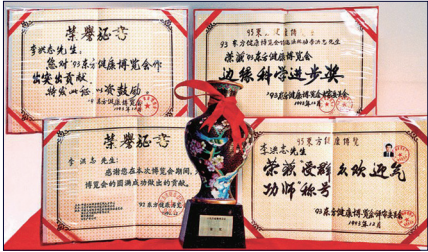 荣誉证书
李洪志先生:
您对'93东方健康博览会作
出突出贡献,
特发此证 以资鼓励。
'93东方健康博览会
1993年12月
93东方健康博览会
93东方健康博览会 李洪志先生
荣获'93东方健康博览会
边缘科学进步奖
'93东方健康博览会
1993年12月
荣誉证书
李洪志先生:
感谢您在本次博览会期间,
博览会的圆满成功做出的贡献。
92东方健康博览会
93东方健康博览
李洪志先生
荣获"受群众欢迎气
功师"称号
93东方健康博览会评审委员会
1993年12月